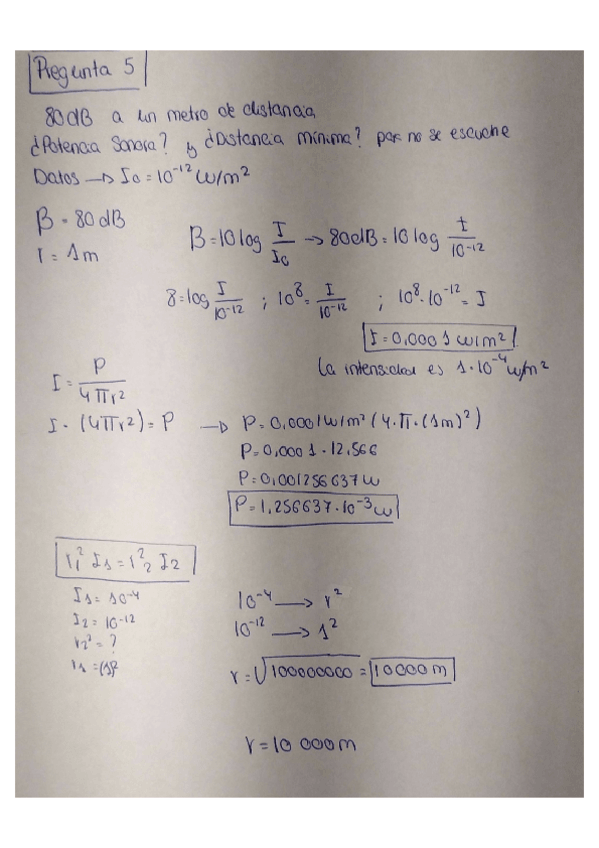 Pregunta 5
80dB a un metro de distancia
¿Potencia Sonora? y ¿Distancia mínima? par no se escuche
Datos → I₀ = 10⁻¹² W/m²
β = 80 dB
r = 1m
β = 10 log I/I₀ → 80dB = 10 log I/10⁻¹²
8 = log I/10⁻¹² ; 10⁸ = I/10⁻¹² ; 10⁸·10⁻¹² = I
I = 0,0001 w/m²
La intensidad es 1·10⁻⁴ w/m²
I = P/4πr²
I · (4πr²) = P → P = 0,0001 w/m² (4·π·(1m)²)
P = 0,0001 · 12,566
P = 0,001256637 w
P = 1,256637·10⁻³ w
r₁² I₁ = r₂² I₂
I₁ = 10⁻⁴
I₂ = 10⁻¹²
r₂² = ?
r₁ = (1)²
10⁻⁴ → r²
10⁻¹² → 1²
r = √100000000 = 10000 m
r = 10 000 m